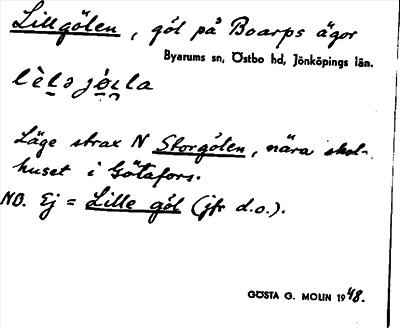 Lillgölen, göl på Boarps ägor
Byarums sn, Östbo hd, Jönköpings län.
Läge strax N Storgölen, nära skol-
huset i Götafors.
NB. Ej = Lille göl (jfr d.o.).
GÖSTA G. MOLIN 1948.